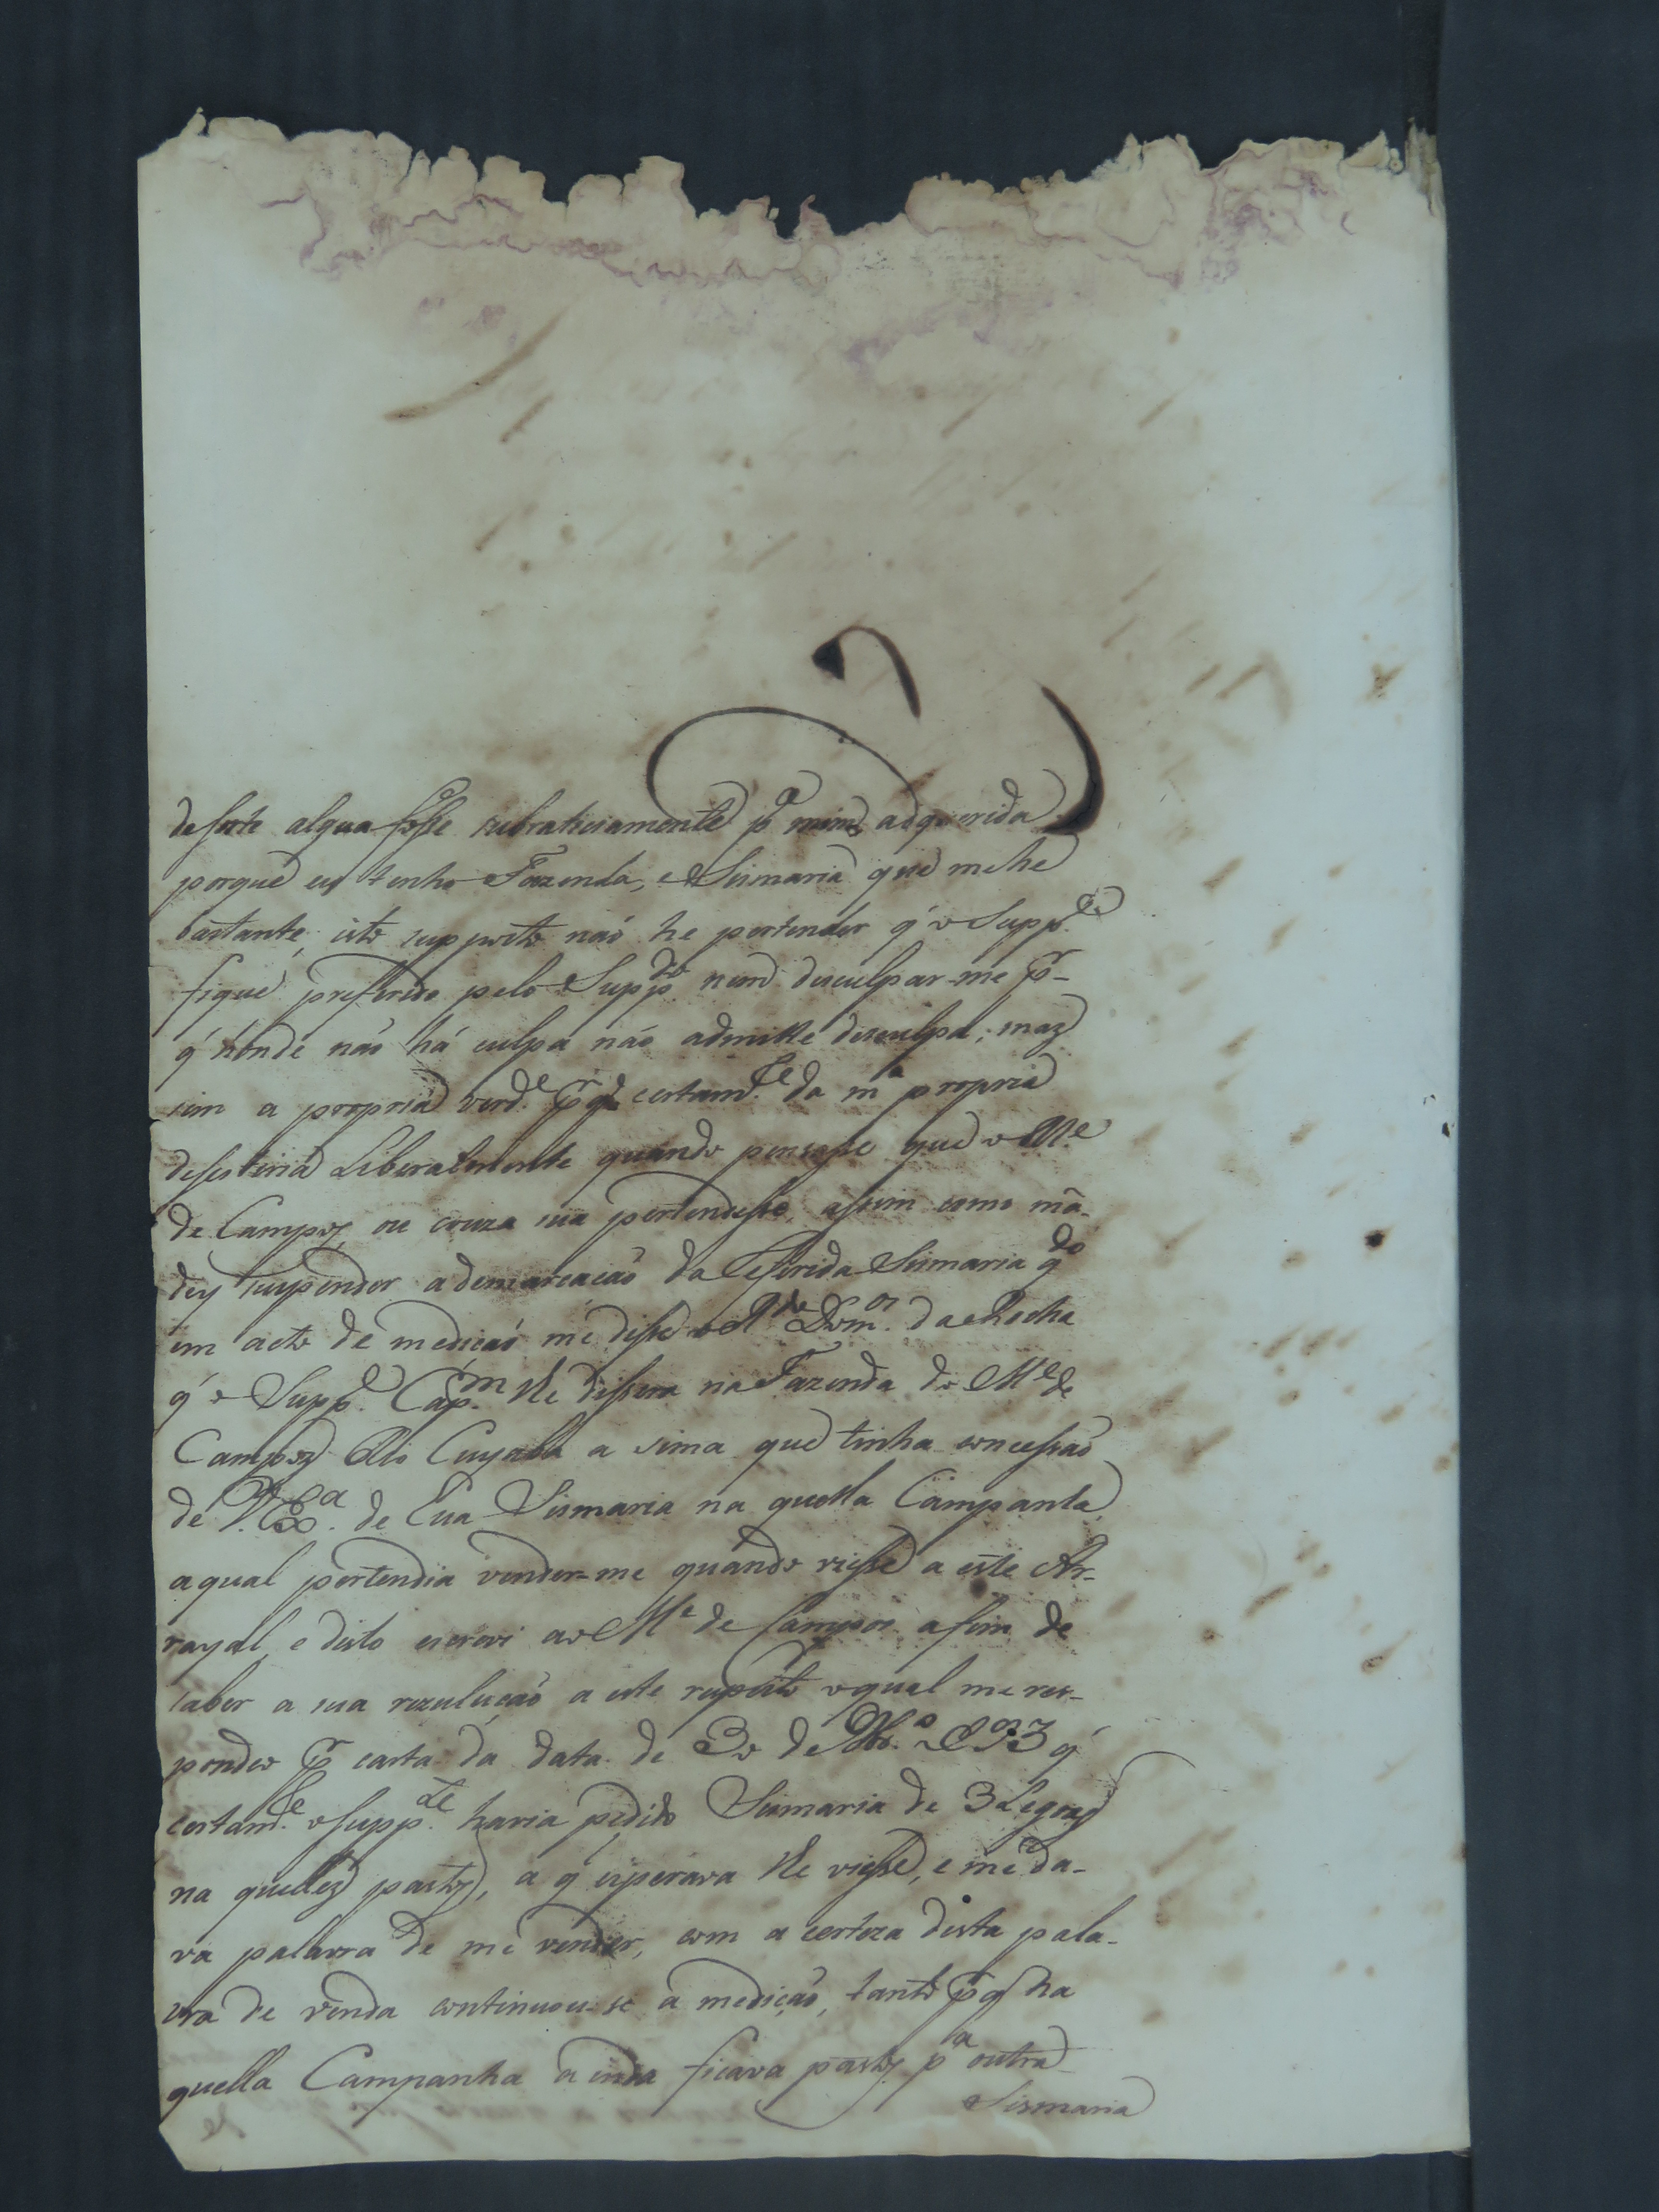 de sorte algua fosse subraticiamente p.r mim adquerida
porque eu tenho Fazenda, e Sismaria que me he
bastante, isto supposto não he pertender q' o Supp.e
fique preferido pelo Supp.do nem desculpar-me p.r
q' honde não há culpa não admitte desculpa; mas
sim a propria verd.e p.r q' certam.te da m.a propria
desesteria Liberalmente quando pensasse que o M.e
de Campos ou couza sua pertendesse, assim como mã-
dey suspender a demarcação da Referida Sismaria q.do
em acto de medição me disse o Dom.os da Rocha
q' o Supp.e Cap.m lhe dissera na Fazenda do M.e de
Campos Rio Cuyabá a sima que tinha concessão
de V. Ex.a de hua Sismaria na quella Campanha,
a qual pertendia vender-me quando viesse a este Ar-
rayal, e disto escrevi ao M.e de Campos a fim de
saber a sua rezulução a este respeito o qual me res-
pondeo p.r carta da data de 30 de q'
certam.te o Supp.te havia pedido Sismaria de 3 Legoas
na quelles pastos, a q' esperava lhe viesse, e me da-
va palavra de me vender, com a certeza desta pala-
vra de venda continuou-se a medição, tanto p.r q' na
quella Campanha ainda ficava pastos p.a outra
Sismaria